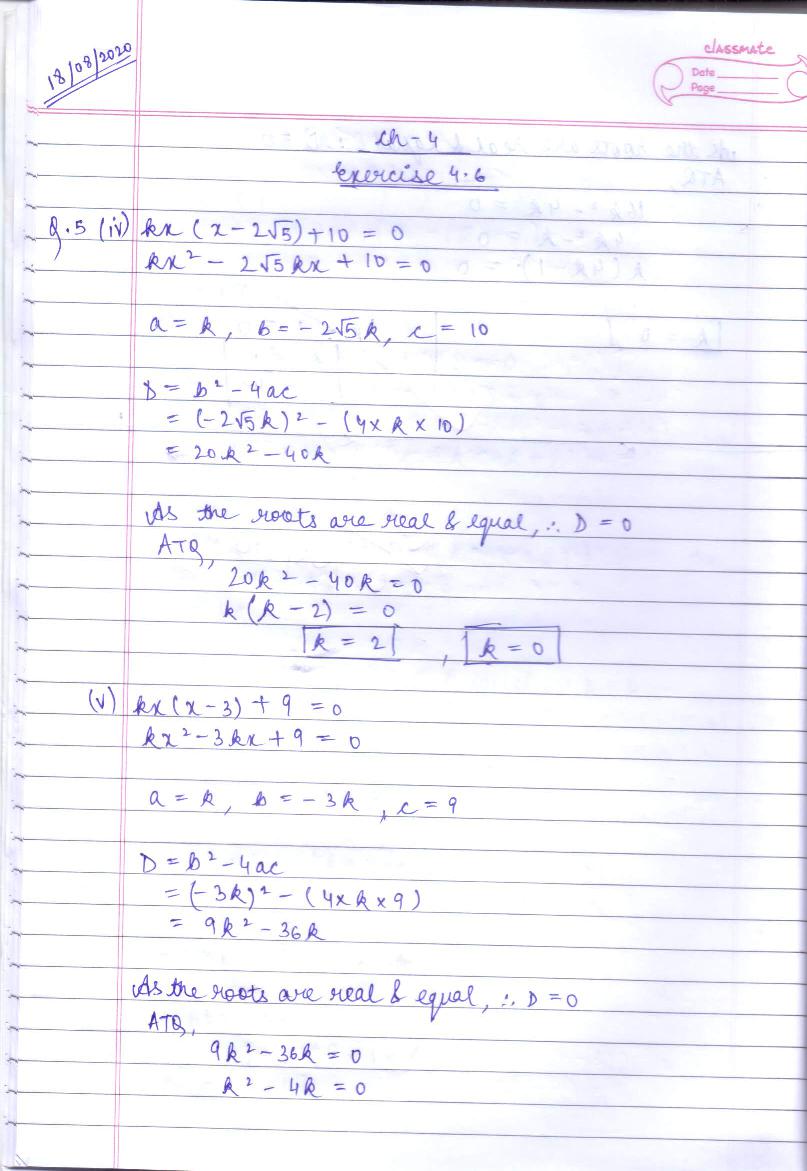 18/08/2020
classmate
Date
Page
Ch-4
Exercise 4.6
Q.5 (iv) kx (x - 2√5) + 10 = 0
kx² - 2√5 kx + 10 = 0
a = k, b = -2√5 k, c = 10
D = b² - 4ac
= (-2√5k)² - (4 × k × 10)
= 20k² - 40k
As the roots are real & equal, ∴ D = 0
ATQ,
20k² - 40k = 0
k (k - 2) = 0
k = 2 , k = 0
(v) kx (x - 3) + 9 = 0
kx² - 3kx + 9 = 0
a = k, b = -3k, c = 9
D = b² - 4ac
= (-3k)² - (4 × k × 9)
= 9k² - 36k
As the roots are real & equal, ∴ D = 0
ATQ,
9k² - 36k = 0
k² - 4k = 0